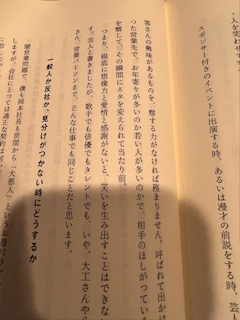 人を笑
スポンサー付きのイベントに出演する時、あるいは漫才の前説をする時、芸
客さんの興味があるものを、察する力がなければ務まりません。呼ばれて出かけ
った営業先で、お年寄りが多いのか若い人が多いのかで、相手のほしがってい
を察して、その瞬間にネタを変えられて当たり前。
つまり、根底に想像力と愛情と感謝がないと、笑いを生み出すことはできな
す。芸人と書きましたが、歌手でも俳優でもタレントでも、いや、大工さんや八
さん、営業パーソンまで、どんな仕事でも同じことだと思います。
一般人か反社か、見分けがつかない時にどうするか
闇営業問題で、僕も岡本社長も世間から「大悪人」という
しますが、会社にとっては適正な契約は何